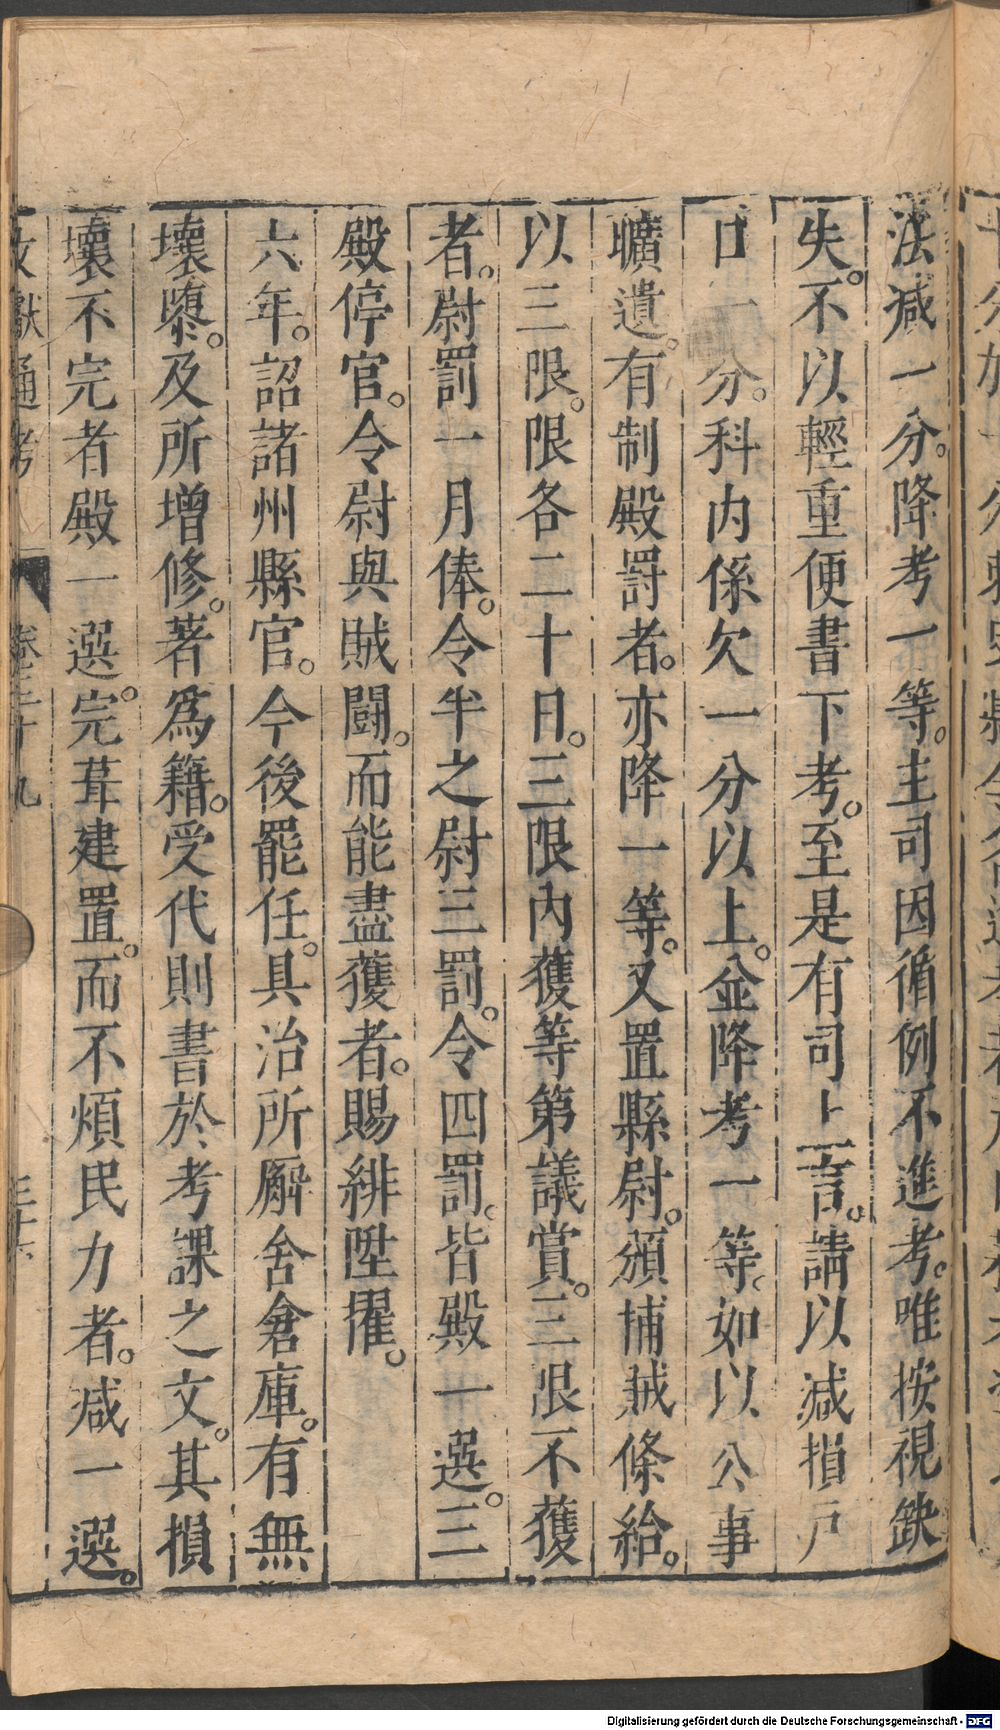 法減一分。降考一等。主司因循例不進考。唯按視缺
失。不以輕重便書下考。至是有司上言。請以減損戶
口一分。科內係欠一分以上。並降考一等。如以公事
曠遺。有制殿罰者。亦降一等。又置縣尉。頒捕賊條給。
以三限。限各二十日。三限內獲等第議賞。三限不獲
者。尉罰一月俸。令半之尉三罰。令四罰。皆殿一選。三
殿停官。令尉與賊鬪。而能盡獲者。賜緋陞擢。
六年。詔諸州縣官。今後罷任。具治所廨舍倉庫。有無
壞隳。及所增修。著爲籍。受代則書於考課之文。其損
壞不完者殿一選。完葺建置。而不煩民力者。減一選。
文獻通考 卷三十九 三十六
Digitalisierung gefördert durch die Deutsche Forschungsgemeinschaft - DFG